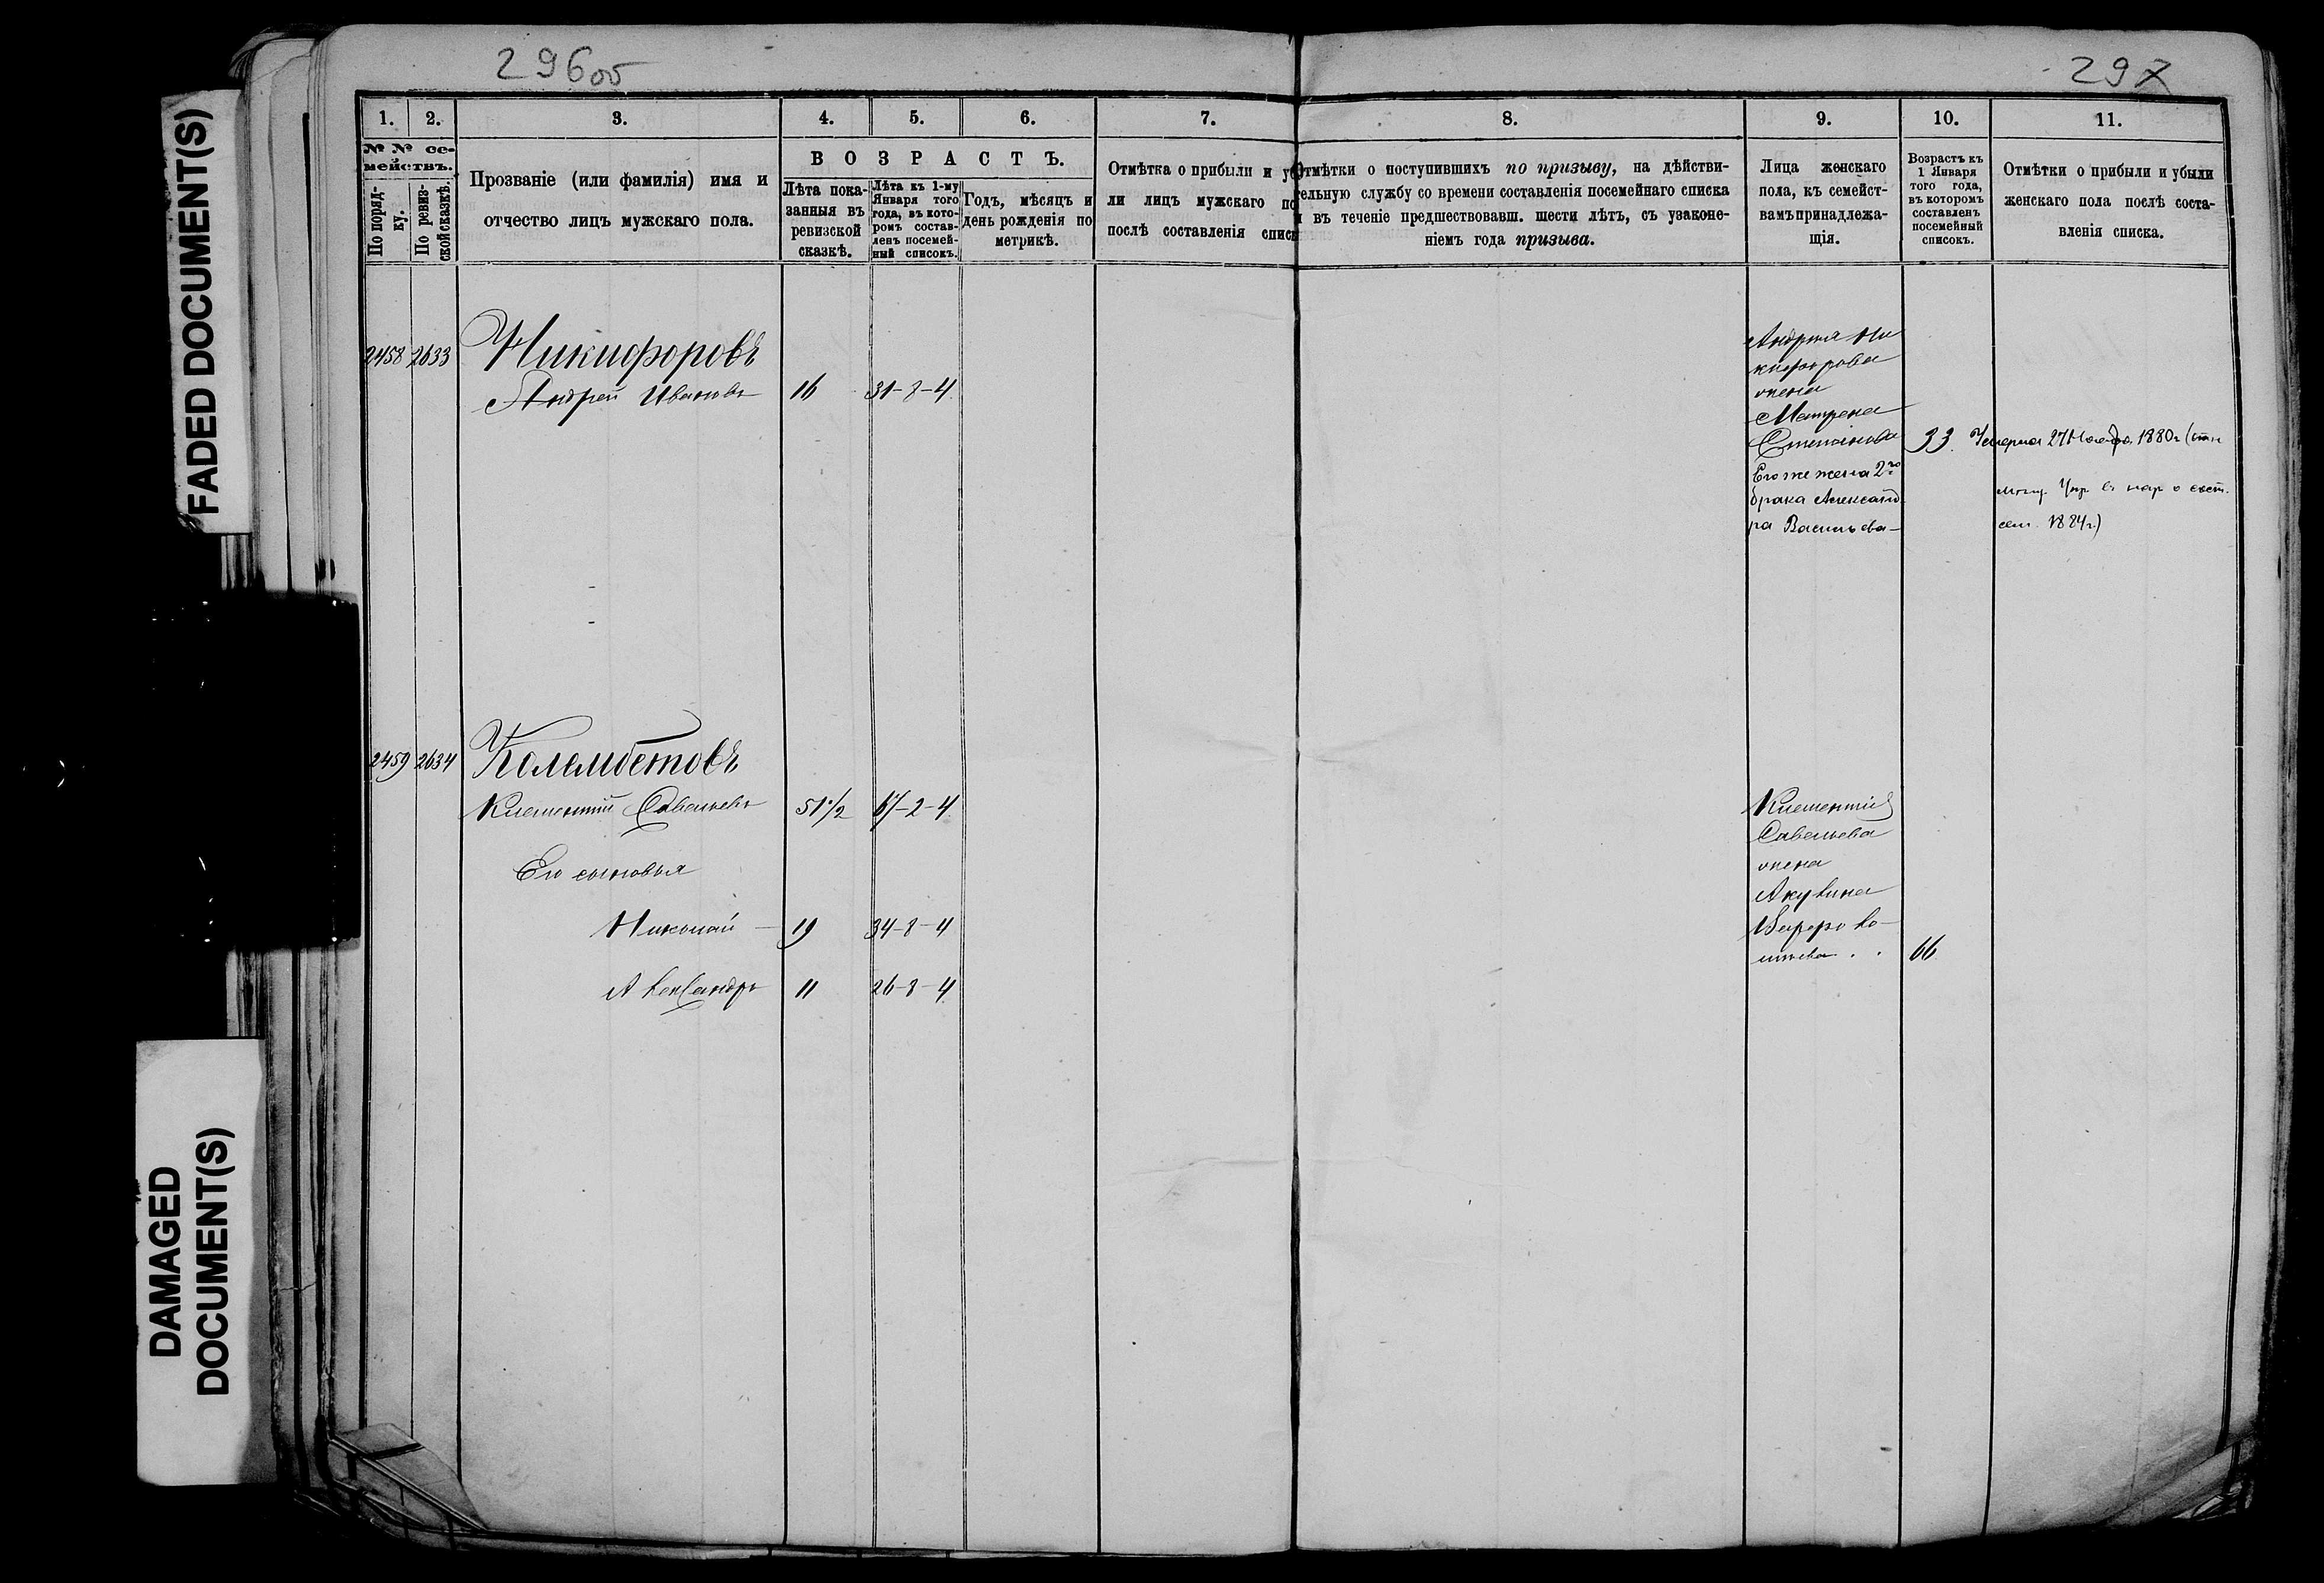 FADED DOCUMENT(S)
DAMAGED
DOCUMENT(S)
296об
297
1.
2.
3.
4.
5.
6.
7.
8.
9.
10.
11.
№ № се-
мействъ.
По поряд-
ку.
По ревиз-
ской сказкѣ.
Прозваніе (или фамилія) имя и
отчество лицъ мужскаго пола.
ВОЗРАСТЪ.
Лѣта пока-
занныя въ
ревизской
сказкѣ.
Лѣта къ 1-му
Января того
года, въ кото-
ромъ состав-
ленъ посемей-
ный списокъ.
Годъ, мѣсяцъ и
день рожденія по
метрикѣ.
Отмѣтка о прибыли и уб
ли лицъ мужскаго по
послѣ составленія списк
Отмѣтки о поступившихъ по призыву, на дѣйстви-
тельную службу со времени составленія посемейнаго списка
и въ теченіе предшествовавш. шести лѣтъ, съ узаконе-
ніемъ года призыва.
Лица женскаго
пола, къ семейст-
вамъ принадлежа-
щія.
Возрастъ къ
1 Января
того года,
въ которомъ
составленъ
посемейный
списокъ.
Отмѣтки о прибыли и убыли
женскаго пола послѣ соста-
вленія списка.
2458 2633 Никифоровъ
Андрей Ивановъ 16 31-8-4
Андрея Ни
кифорова
жена
Матрена
Степанова 33 Умерла 27 1880г
Его же жена 2го
брака Александ
ра Васильева
1884г.)
2459 2634 Колембетовъ
Климентій Савельевъ 51 1/2 67-2-4
Его сыновья
Николай 19 34-8-4
Александръ 11 26-8-4
Климентія
Савельева
жена
Акулина
66